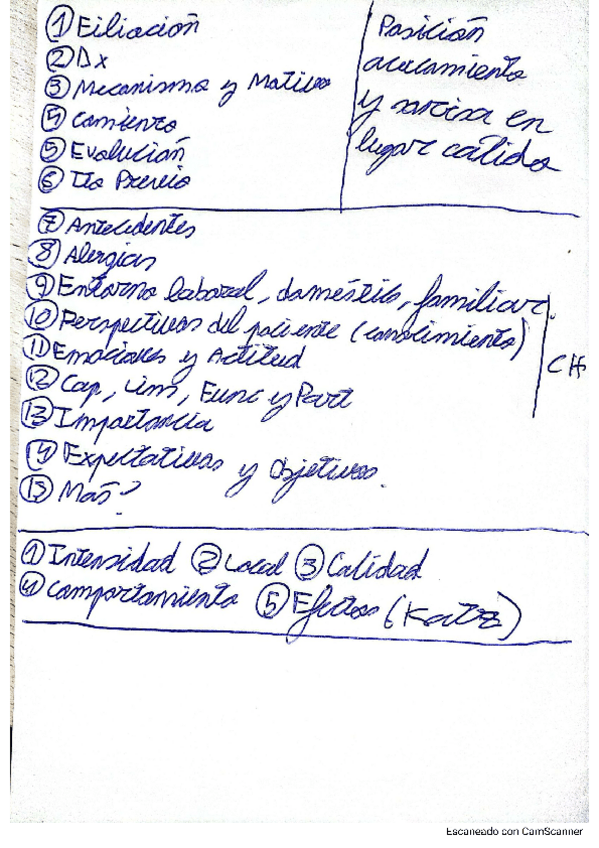 ① Filiación
② Dx
③ Mecanismo y Motivo
④ Comienzo
⑤ Evolución
⑥ Tto Previo
Posición
acercamiento
y sonrisa en
lugar calido
⑦ Antecedentes
⑧ Alergias
⑨ Entorno laboral, doméstico, familiar.
⑩ Perspectivas del paciente (conocimiento)
⑪ Emociones y Actitud
⑫ Cap, Lims, Func y Part
CHs
⑬ Importancia
⑭ Expectativas y Objetivos.
⑮ Más?
① Intensidad ② Local ③ Calidad
④ Comportamiento ⑤ Efectos (Katz)
Escaneado con CamScanner